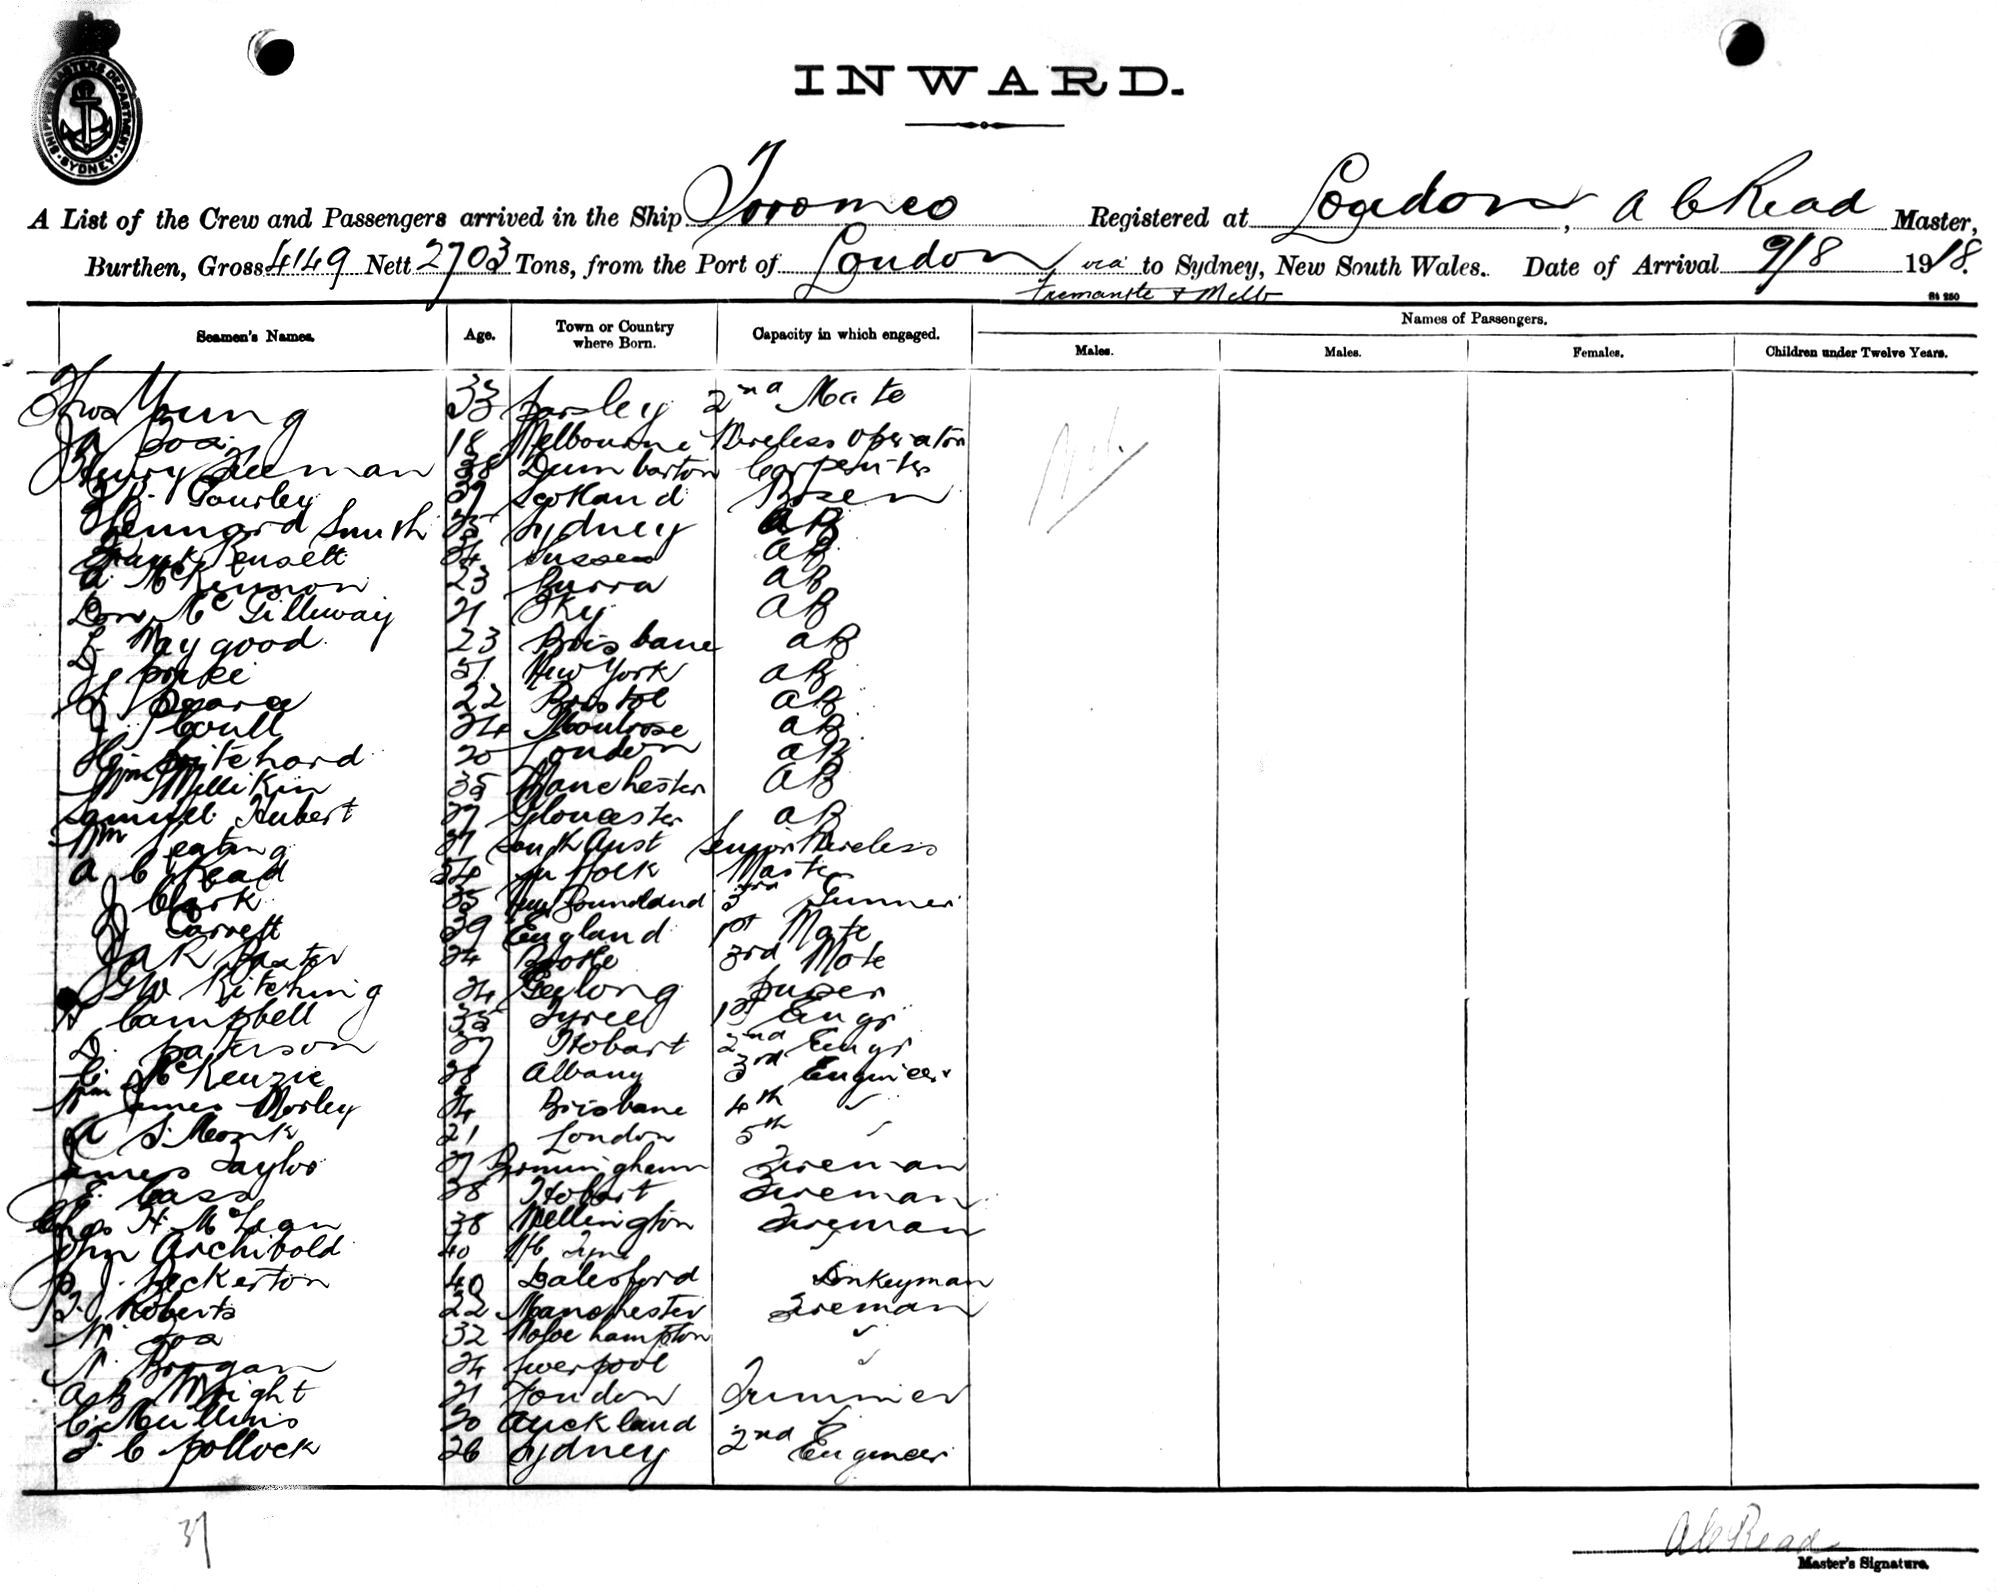 SHIPPING MASTERS DEPARTMENT
SYDNEY
INWARD.
A List of the Crew and Passengers arrived in the Ship Toromeo Registered at London, A C Read Master,
Burthen, Gross 4149 Nett 2703 Tons, from the Port of London via to Sydney, New South Wales. Date of Arrival 9/8 1918.
Fremantle & Melb
St 250
Seamen's Names. Age. Town or Country where Born. Capacity in which engaged. Names of Passengers.
Males. Males. Females. Children under Twelve Years.
Thos Young 33 Farsley 2nd Mate
Nil.
18 Melbourne Wireless Operator
Henry 38 Dumbarton Carpenter
Gourley 39 Scotland Bosen
Smith 35 Sydney AB
Frank Rensett 34 Sussex AB
A. McKennon 23 Barra AB
McGilluway 21 Sky AB
Maygood 23 Brisbane AB
51 New York AB
22 Bristol AB
J Coull 24 Montrose AB
Pritchard 20 London AB
Wm Millikin 35 Manchester AB
Samuel Hubert 39 Gloucester AB
Wm Keating South Aust Senior Wireless
A C Read 54 Suffolk Master
J Clark 35 Newfoundland 3rd
J Garrett 39 England 1st Mate
J A K Baxter 24 Bootle 3rd Mate
G W Kitching 24 Geelong
Campbell 35 Tyree 1st Engr
D. Paterson 39 Hobart 2nd Engr
C. McKenzie 28 Albany 3rd Engineer
Wm James Morley 24 Brisbane 4th "
A S. Monk 21 London 5th "
James Taylor Birmingham Fireman
E. Cass 38 Hobart Fireman
Chas H. McLean 38 Wellington Fireman
John Archibold 40
P J. Peckerton 40 Dalesford Donkeyman
J. Roberts 22 Manchester Fireman
W. Fox 32 "
N. Brogan 24 Liverpool "
Wright 21 London Trimmer
C. Mullins 20 Auckland "
J. C Pollock 26 Sydney 2nd Engineer
37
A C Read
Master's Signature.